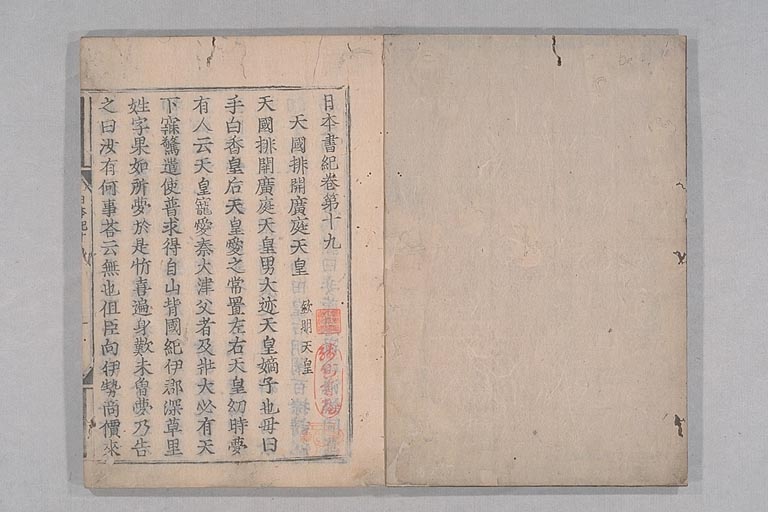 日本書紀卷第十九
天國排開廣庭天皇 欽明天皇
天國排開廣庭天皇男大迹天皇嫡子也母曰
手白香皇后天皇愛之常置左右天皇幼時夢
有人云天皇寵愛秦大津父者及壯大必有天
下寐驚遣使普求得自山背國紀伊郡深草里
姓字果如所夢於是忻喜遍身歎未曾夢乃告
之曰汝有何事荅云無也但臣向伊勢商價來